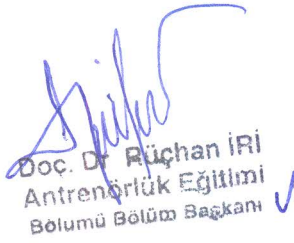 Doç. Dr Rüçhan İRİ
Antrenörlük Eğitimi
Bölümü Bölüm Başkanı